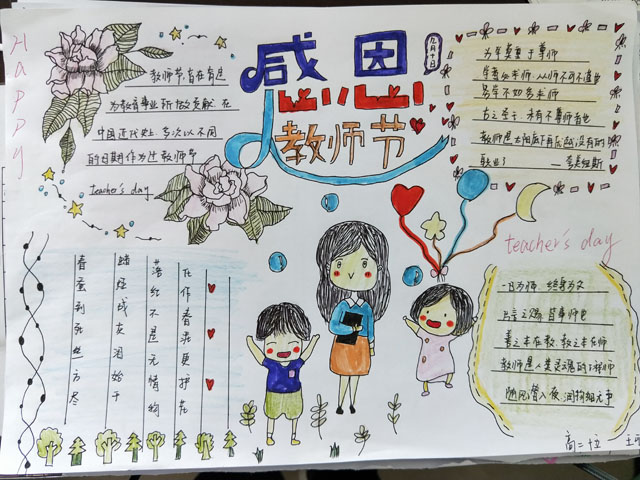 Happy
感恩
九月十日
教师节
教师节,旨在肯定
为教育事业所做贡献.在
中国近代史上,多次以不同
的日期作为过教师节
teacher's day
为学莫重于尊师
学贵得师
易学不如多求师
古之圣王,未有不尊师者也
教师是太阳底下再优越没有的
职业了
——夸美纽斯
teacher's day
一日为师 终身为父
片言之赐,皆事师也
善之本在教,教之本在师
教师是人类灵魂的工程师
随风潜入夜,润物细无声
春蚕到死丝方尽
蜡炬成灰泪始干
落红不是无情物
化作春泥更护花
高二十五